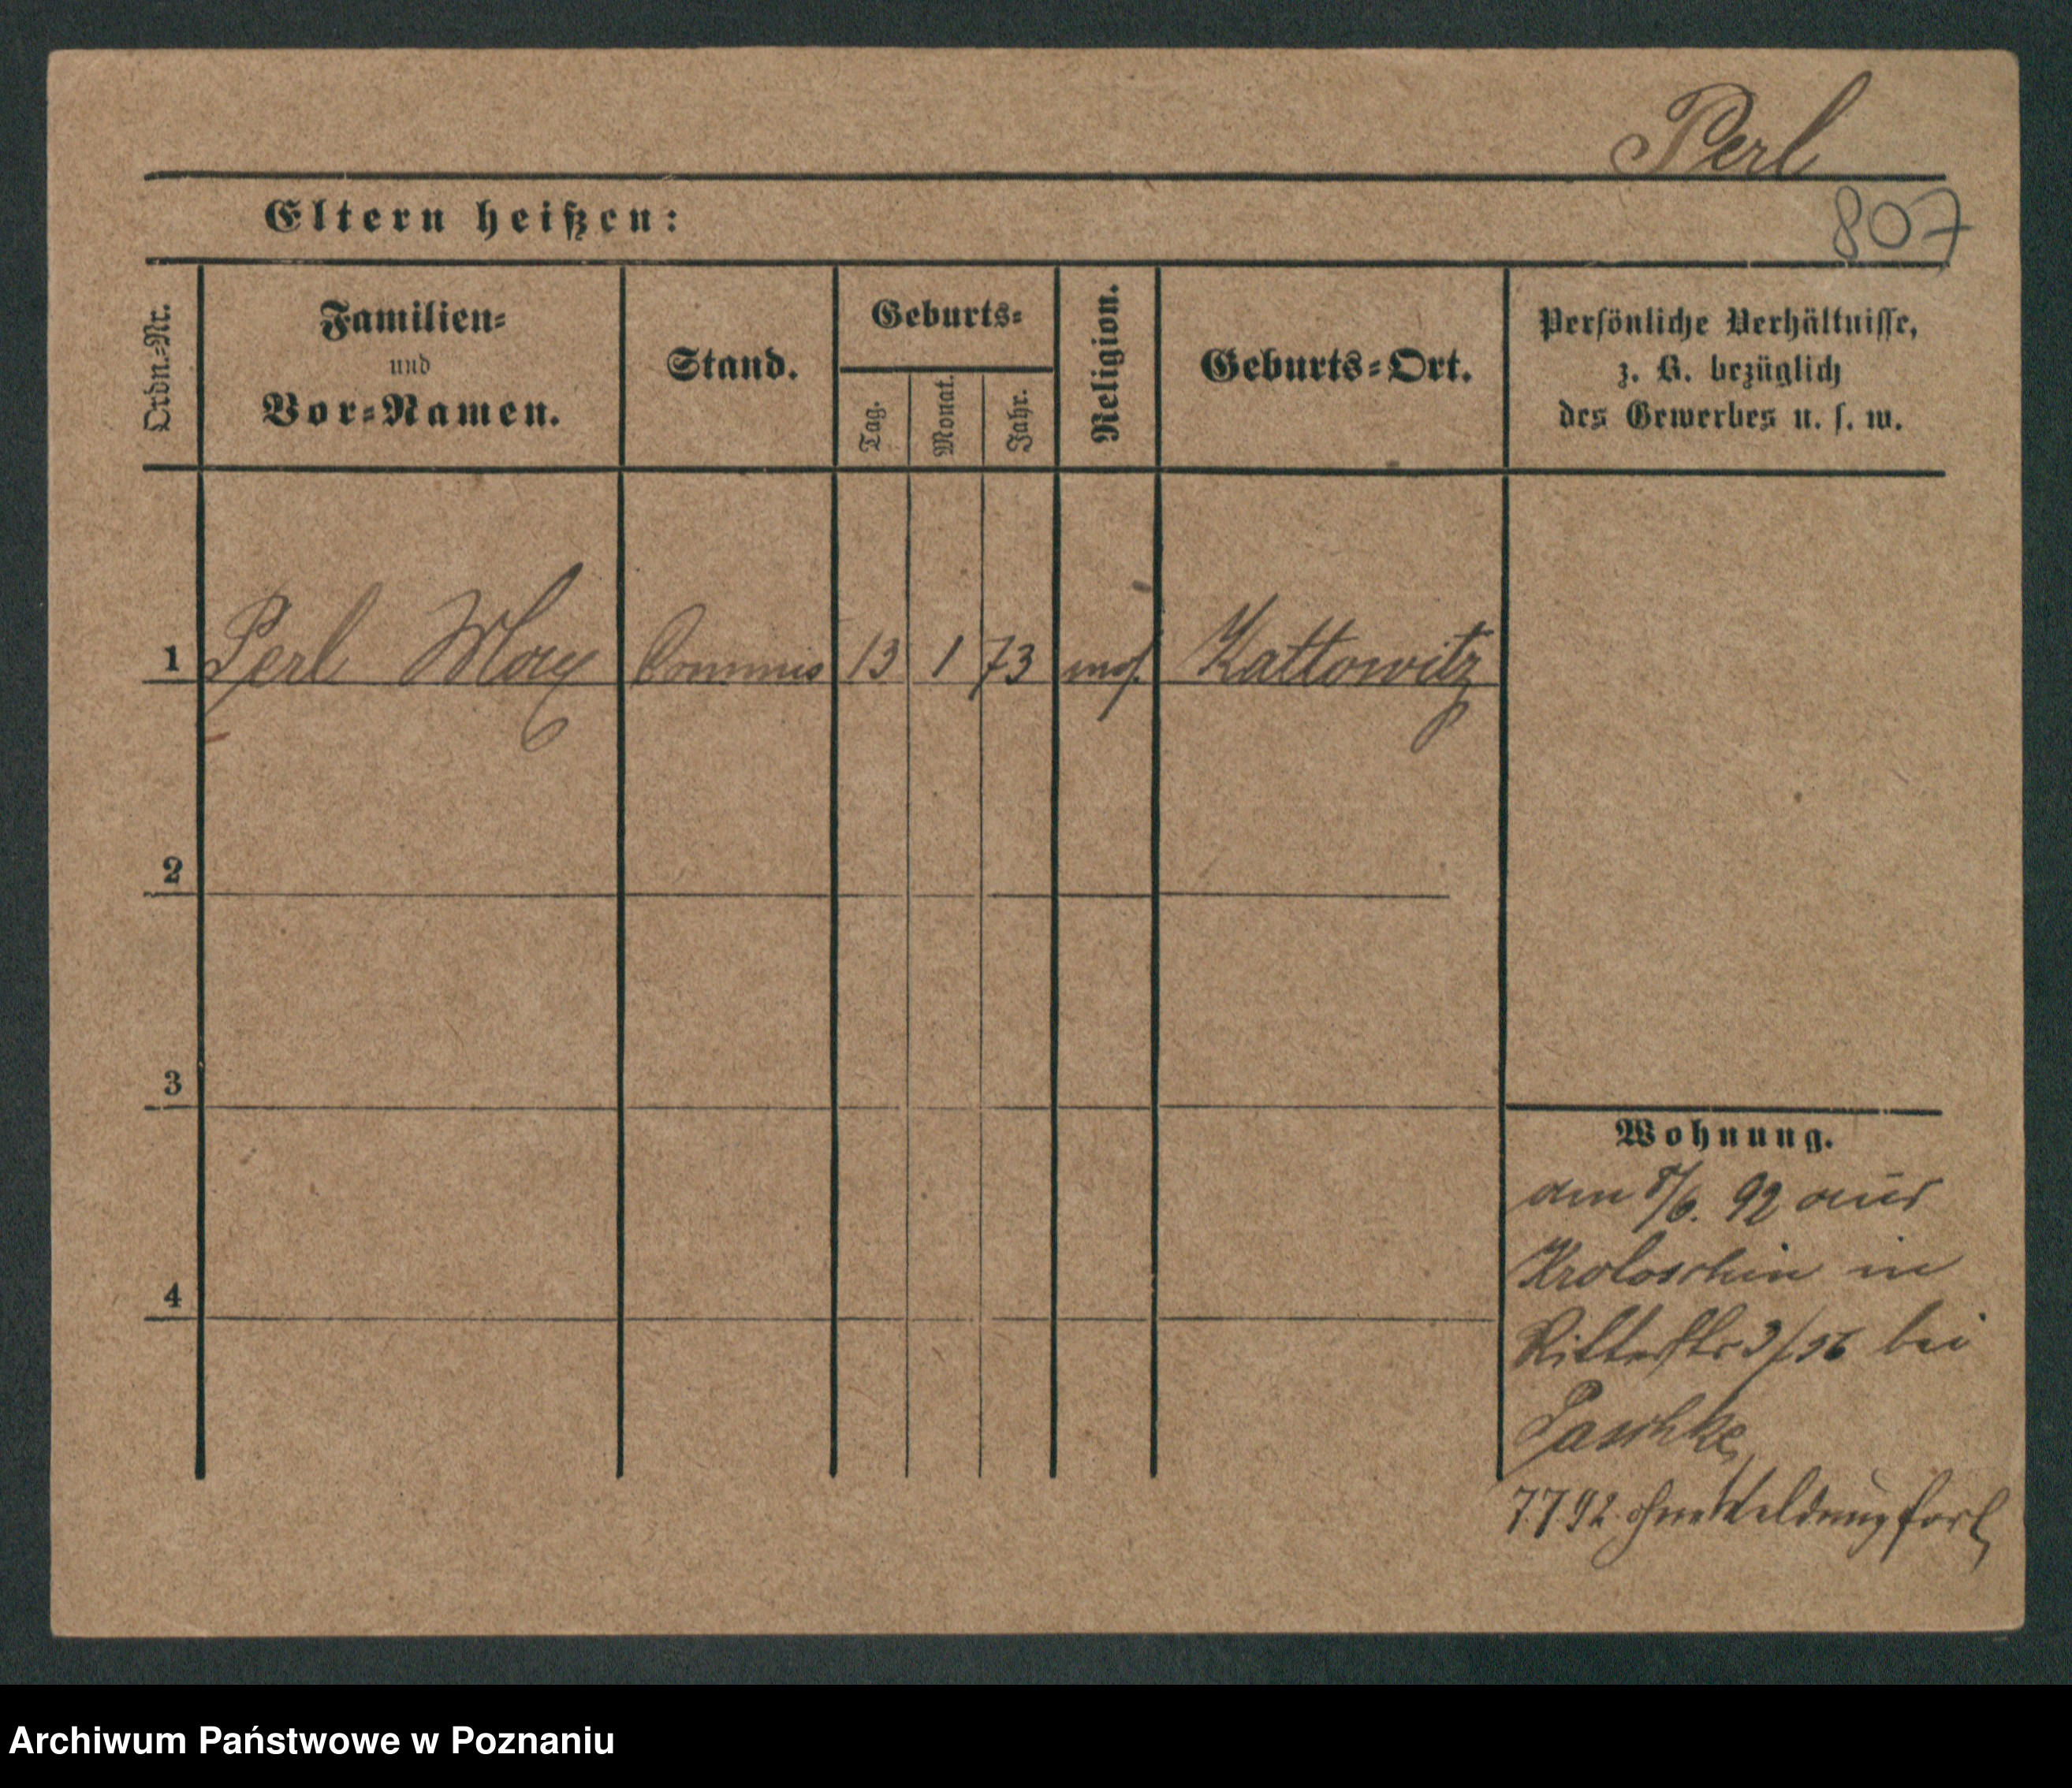 Perl
Eltern heißen:
807
Ordn.-Nr.
Familien-
und
Vor-Namen.
Stand.
Geburts-
Tag.
Monat.
Jahr.
Religion.
Geburts-Ort.
Persönliche Verhältnisse,
z. B. bezüglich
des Gewerbes u. s. w.
1 Perl Max Commis 13 1 73 mos. Kattowitz
2
3
4
Wohnung.
den 8/6. 92 aus
Krotoschin in
Ritterstr 3/ bei
Paschke
7.7.92. ohne Meldung fort
Archiwum Państwowe w Poznaniu